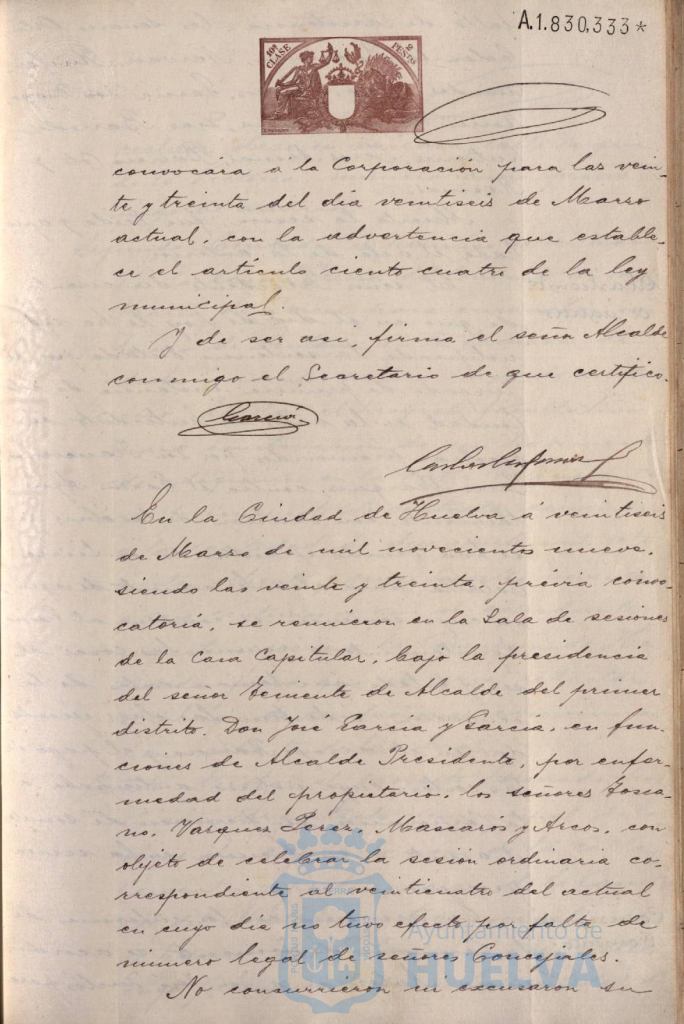 A.1.830,333*
10ª CLASE
2 PESETAS
convocára á la Corporación para las vein-
te y treinta del dia veintiseis de Marzo
actual, con la advertencia que estable-
ce el artículo ciento cuatro de la ley
municipal.
Y de ser asi, firma el señor Alcalde
conmigo el Secretario de que certifico.
García
En la Ciudad de Huelva á veintiseis
de Marzo de mil novecientos nueve,
siendo las veinte y treinta, prévia convo-
catoria, se reunieron en la Sala de sesiones
de la Casa Capitular, bajo la presidencia
del señor Teniente de Alcalde del primer
distrito, Don José García y García, en fun-
ciones de Alcalde Presidente, por enfer-
medad del propietario, los señores Tosca-
no, Vazquez Perez, Mascarós y Arcos, con
objeto de celebrar la sesión ordinaria co-
rrespondiente al veinticuatro del actual
en cuyo dia no tuvo efecto por falta de
número legal de señores Concejales.
No concurrieron ni excusaron su
Ayuntamiento de
HUELVA